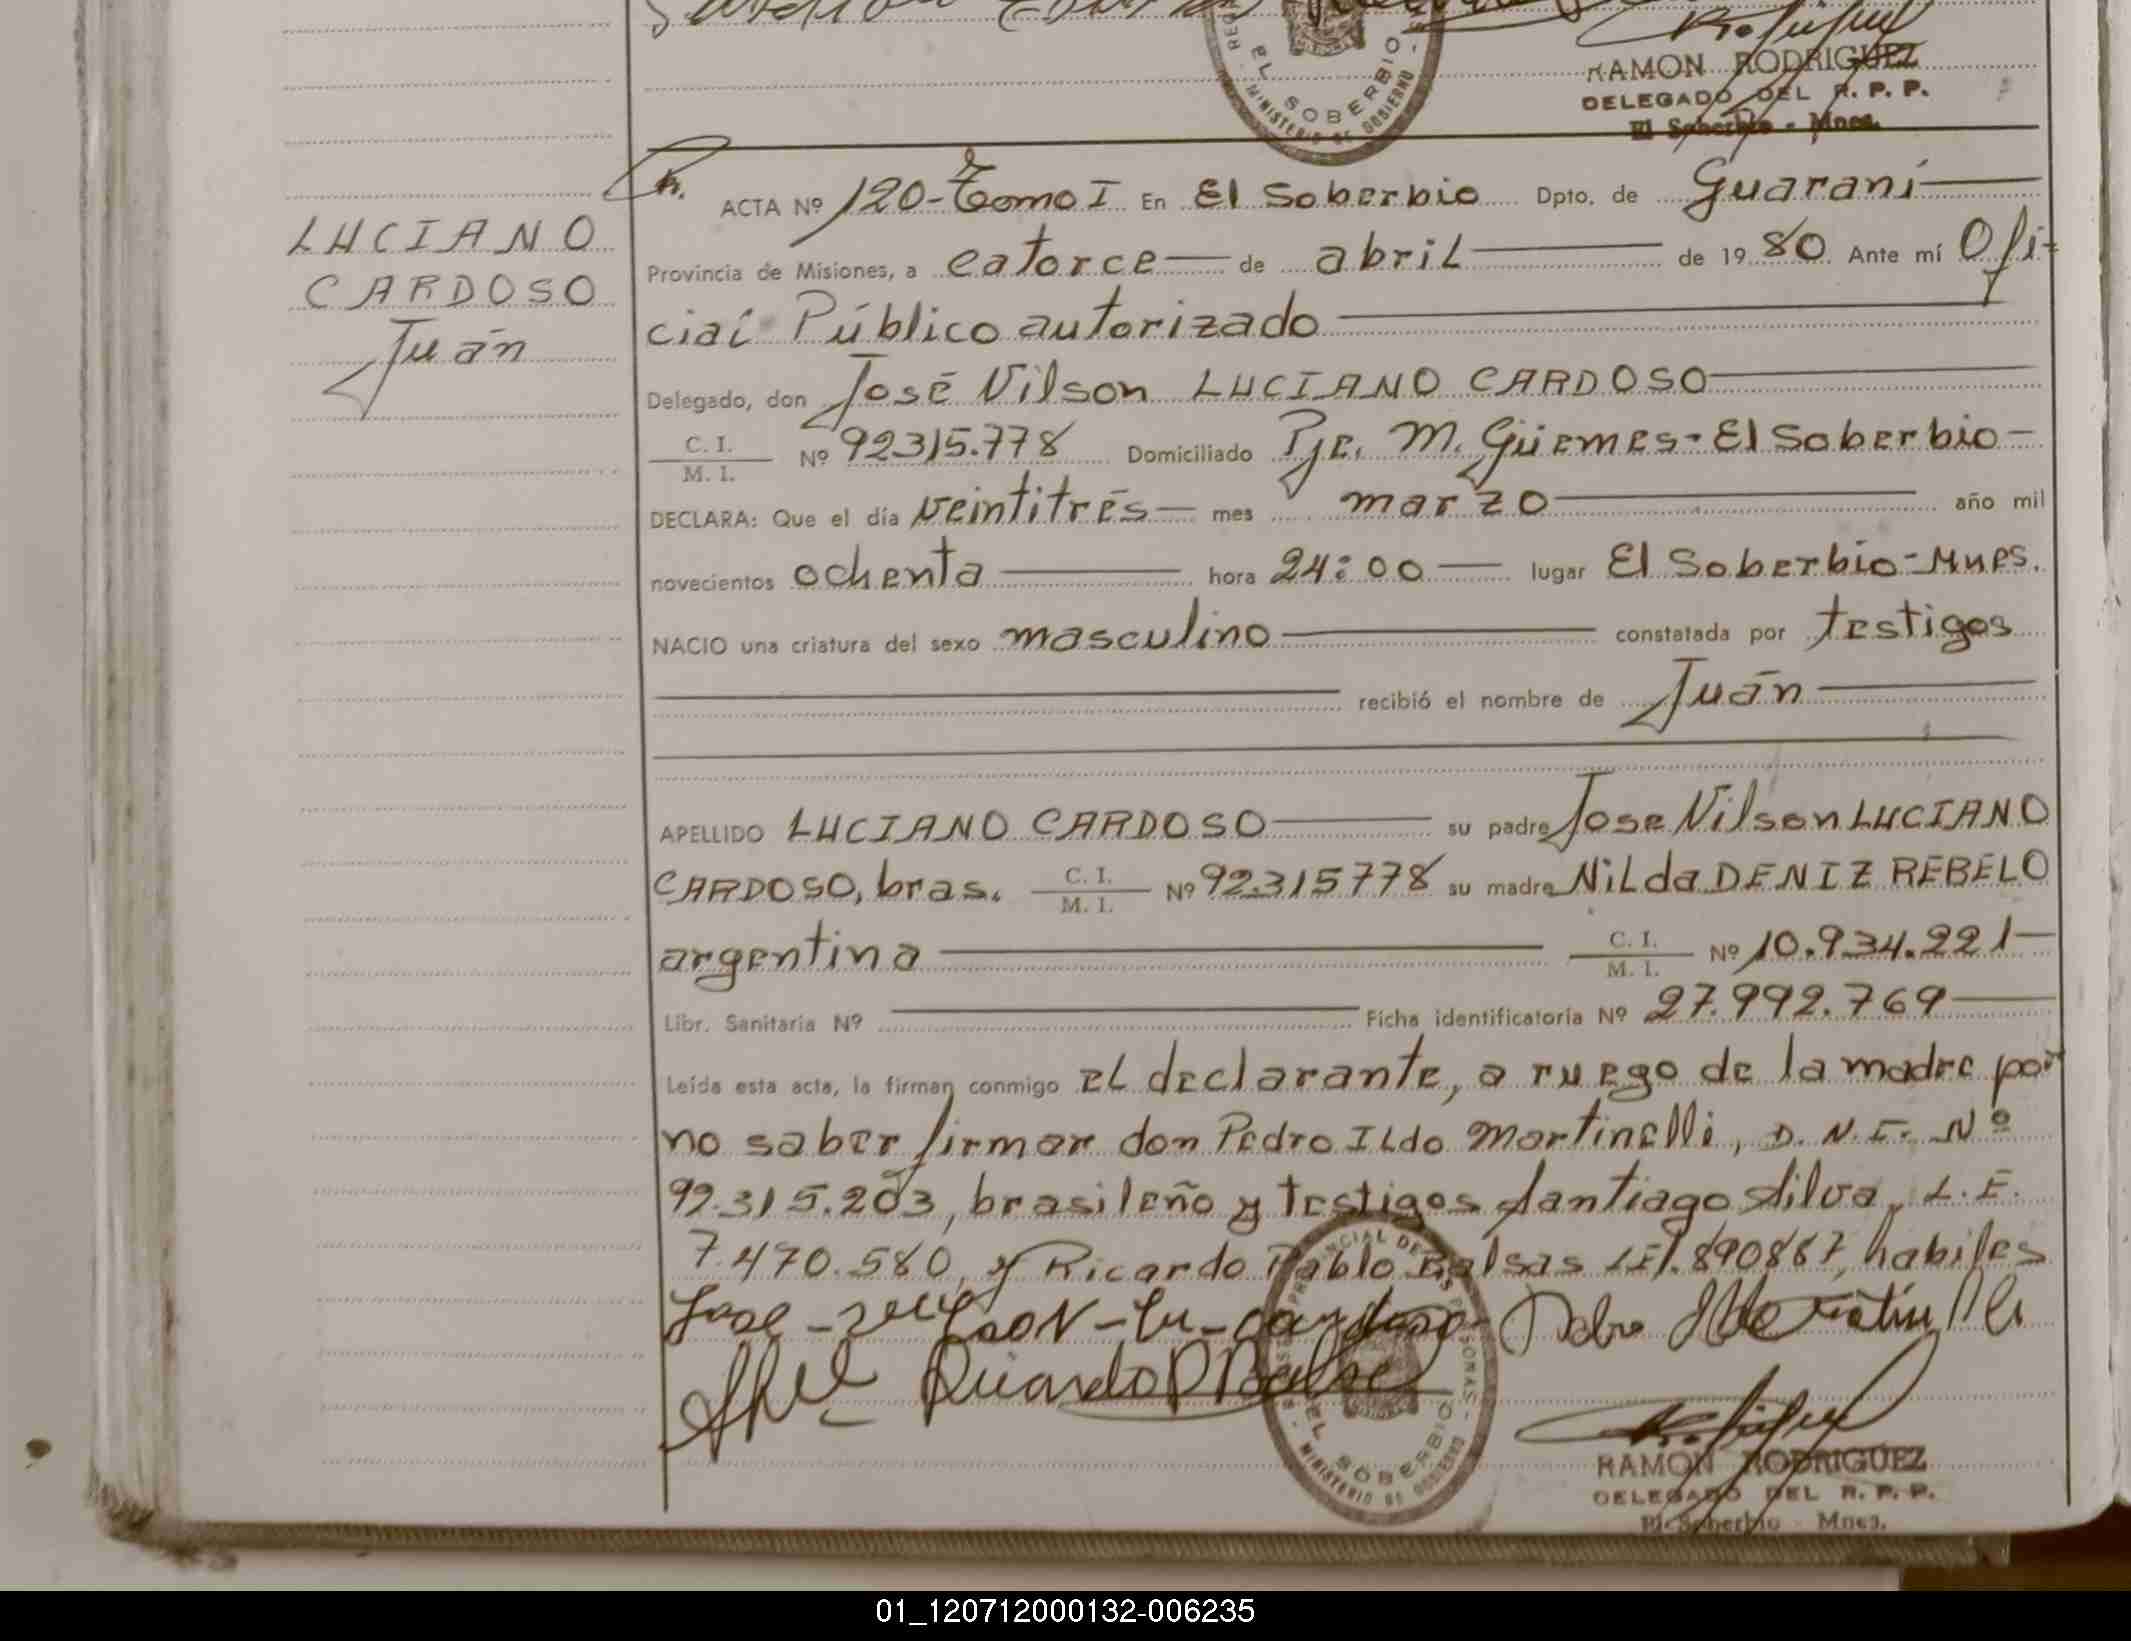 RAMON RODRIGUEZ
DELEGADO DEL R. P. P.
El Soberbio - Mnes.
EL SOBERBIO
MINISTERIO DE GOBIERNO
LUCIANO
CARDOSO
Juán
ACTA Nº 120-Tomo I En El Soberbio Dpto. de Guaraní
Provincia de Misiones, a catorce de abril de 1980 Ante mí Ofi-
cial Público autorizado
Delegado, don José Nilson LUCIANO CARDOSO
C. I. / M. I. Nº 92315.778 Domiciliado Pje. M. Güemes-El Soberbio-
DECLARA: Que el día veintitrés mes marzo año mil
novecientos ochenta hora 24:00 lugar El Soberbio-Mnes.
NACIO una criatura del sexo masculino constatada por testigos
recibió el nombre de Juán
APELLIDO LUCIANO CARDOSO su padre Jose Nilson LUCIANO
CARDOSO, bras. C. I. / M. I. Nº 92.315778 su madre NiLda DENIZ REBELO
argentina C. I. / M. I. Nº 10.934.221
Libr. Sanitaria Nº Ficha identificatoria Nº 27.992.769
Leída esta acta, la firman conmigo el declarante, a ruego de la madre por
no saber firmar don Pedro ILdo Martinelli, D. N. I. Nº
92.315.203, brasileño y testigos Santiago Silva, L. E.
7.470.580, y Ricardo Pablo Balsas LE1.890887, habiles
EL SOBERBIO
MINISTERIO DE GOBIERNO
RAMON RODRIGUEZ
DELEGADO DEL R. P. P.
El Soberbio - Mnes.
01_120712000132-006235